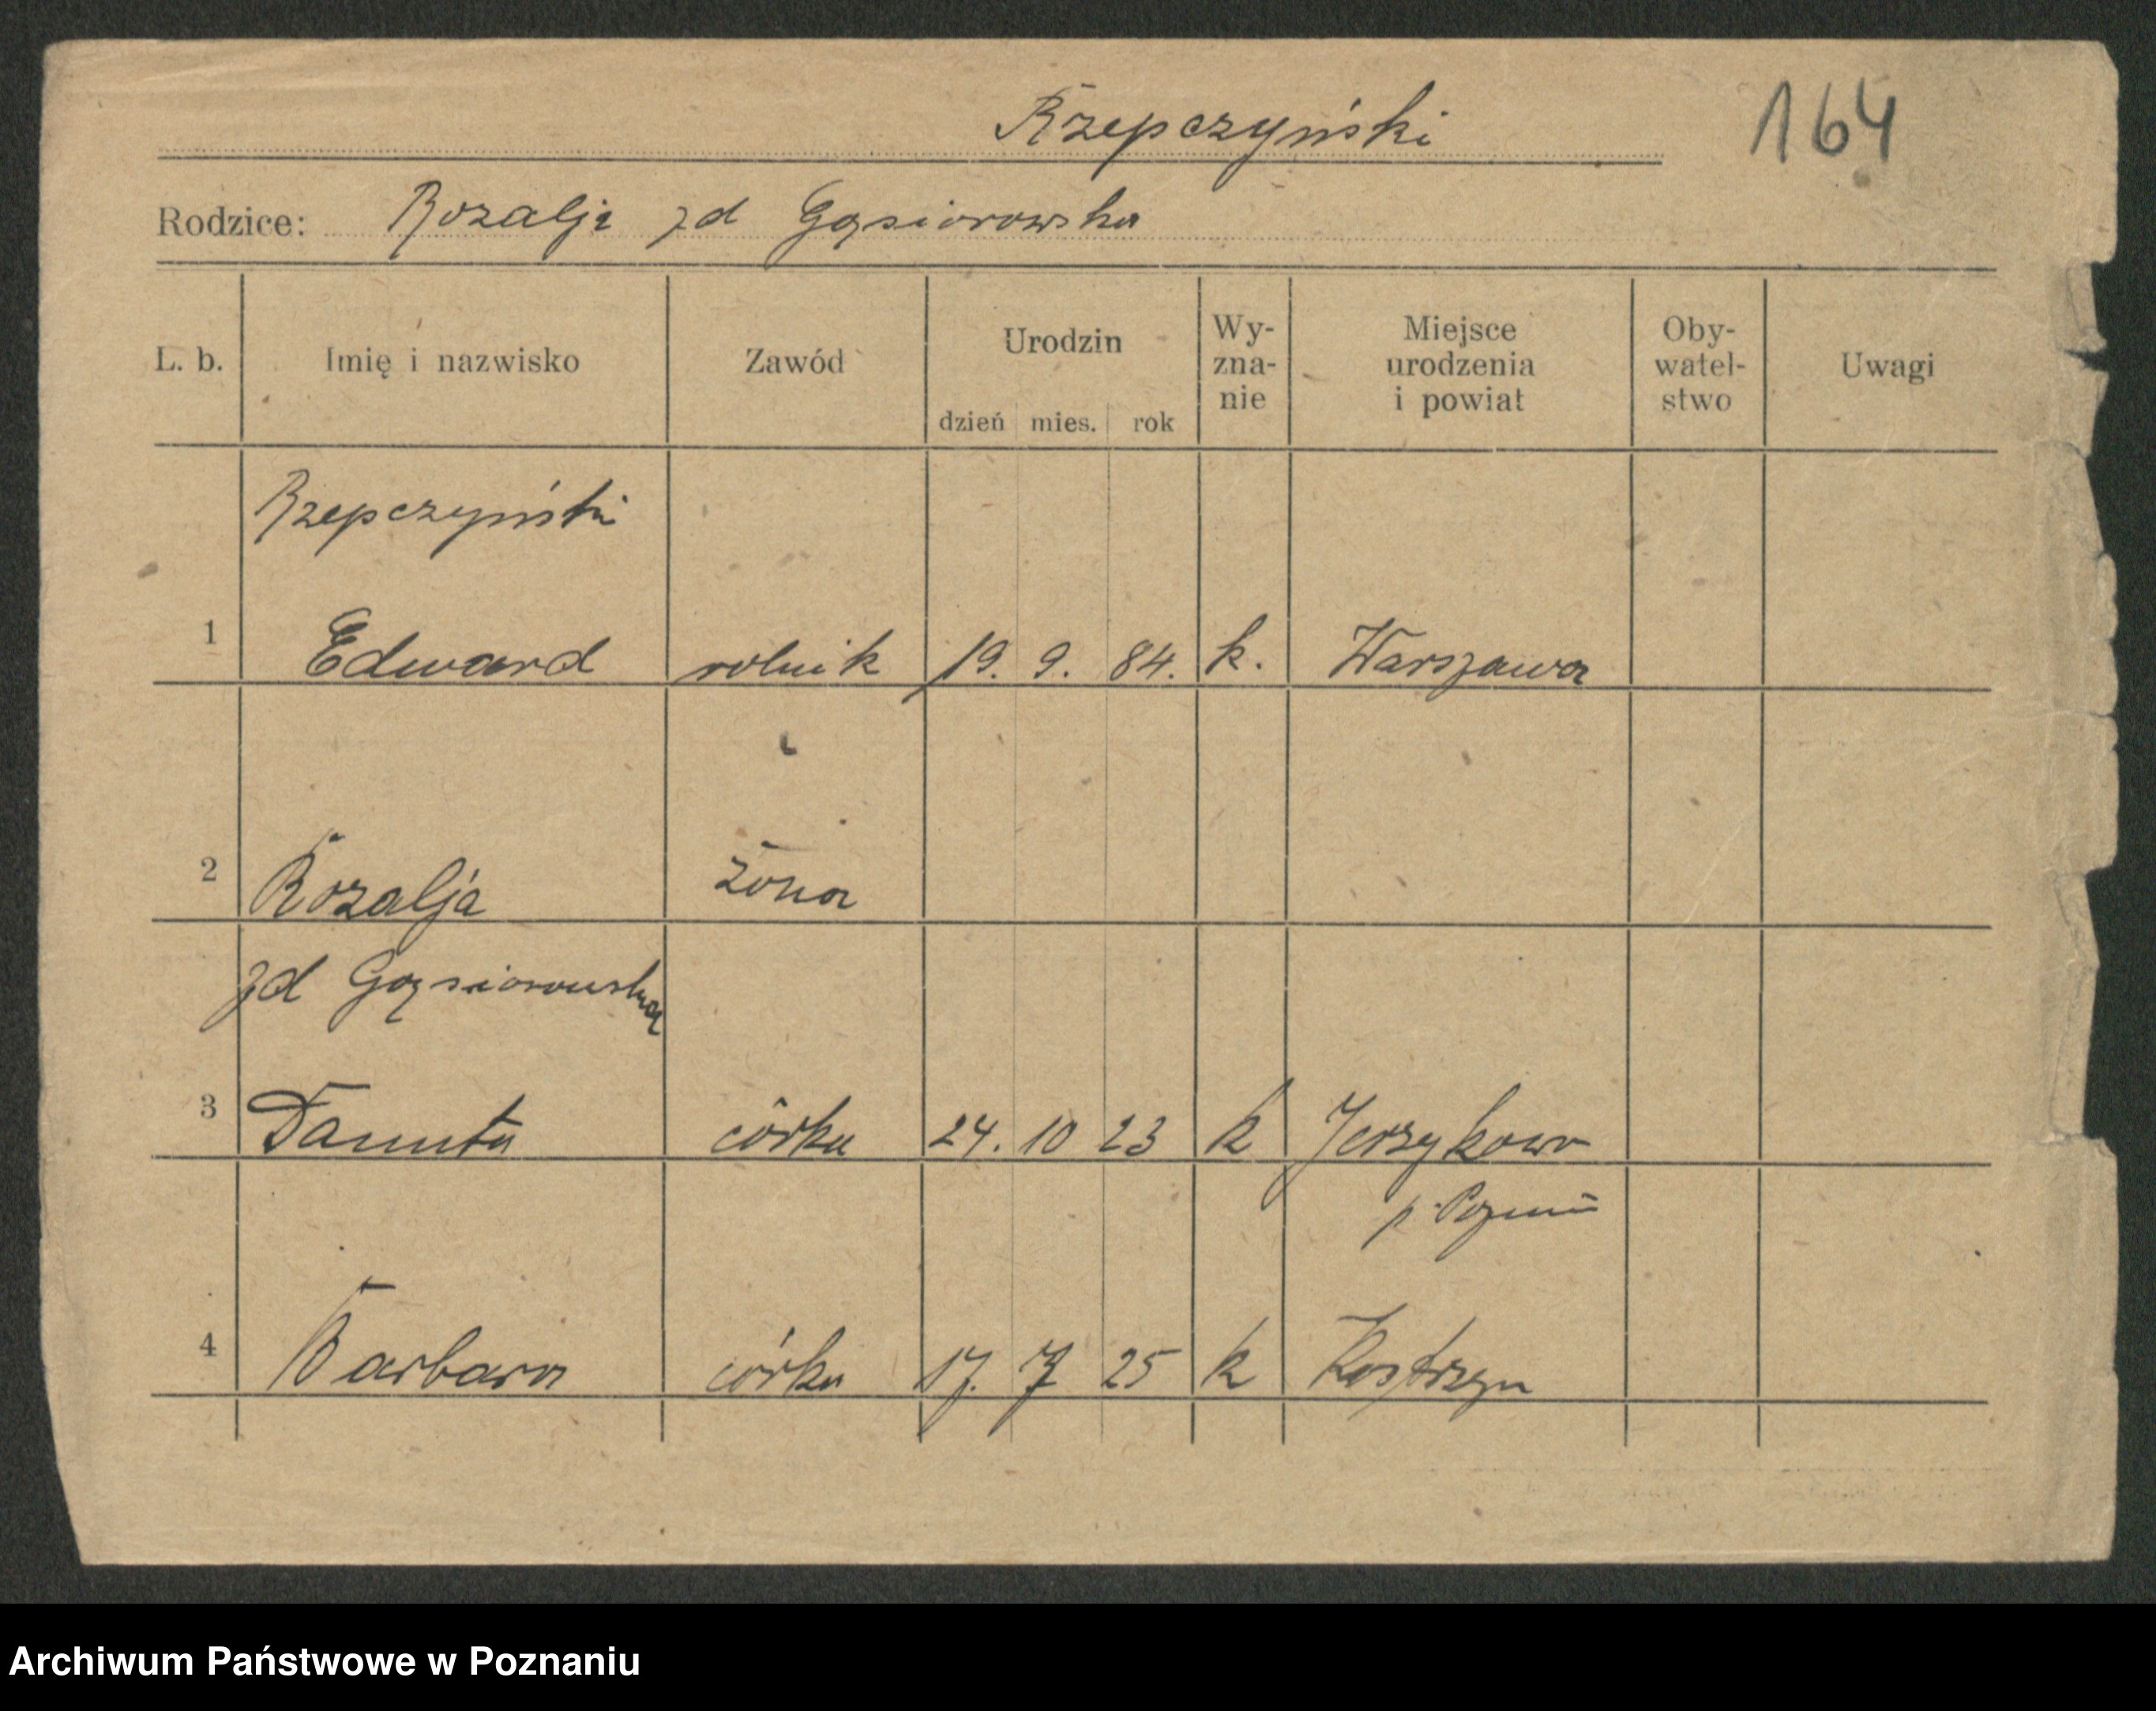 Rzepczyński 164
Rodzice: Rozalja zd Gąsiorowska
L. b. Imię i nazwisko Zawód Urodzin Wy- Miejsce Oby- Uwagi
zna- urodzenia watel-
nie i powiat stwo
dzień mies. rok
Rzepczyński
1 Edward rolnik 19. 9. 84. k. Warszawa
2 Rozalja żona
zd Gąsiorowska
3 Danuta córka 24. 10 23 k Jerzykowo
p. Poznań
4 Barbara córka 17. 7 25 k Kostrzyn
Archiwum Państwowe w Poznaniu